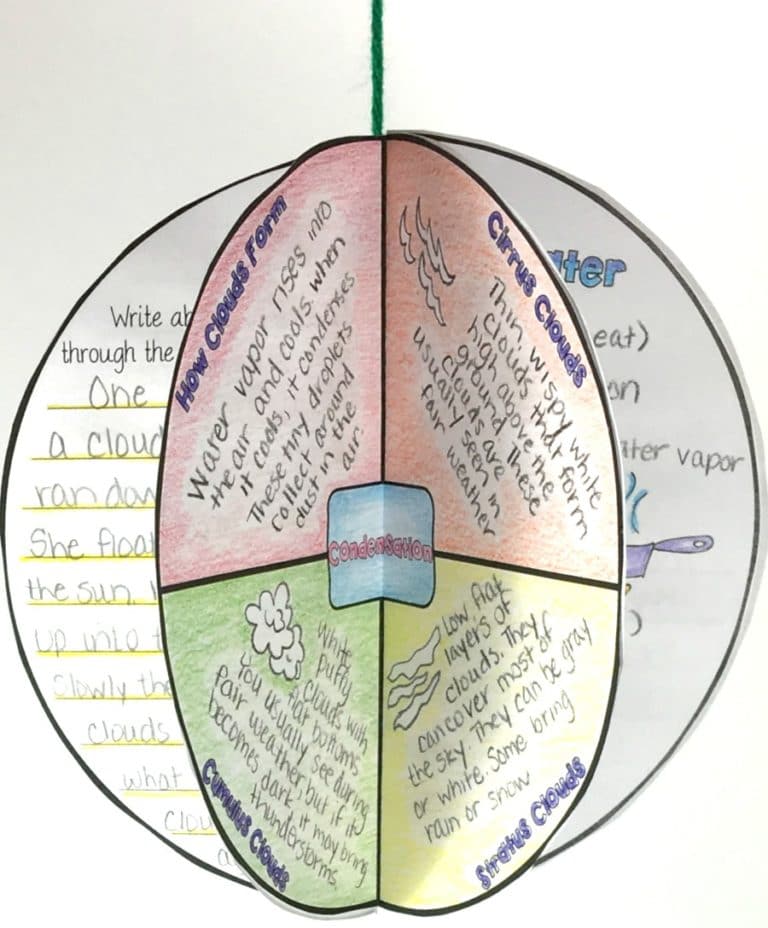 How Clouds Form
Water vapor rises into
the air and cools. When
it cools, it condenses
These tiny droplets
collect around
dust in the
air.
Cirrus Clouds
Thin wispy white
Clouds that form
high above the
ground. These
Clouds are
usually seen in
fair weather
Condensation
White
puffy
clouds with
flat bottoms.
You usually see during
fair weather, but if it
becomes dark, it may bring
thunderstorms
Cumulus Clouds
Low flat
layers of
clouds. They
can cover most of
the sky. They can be gray
or white. Some bring
rain or snow
Stratus Clouds
Write ab
through the
One
a cloud
ran dow
She float
the sun.
up into t
slowly the
clouds
what
clou
a
ter
eat)
on
ater vapor
)